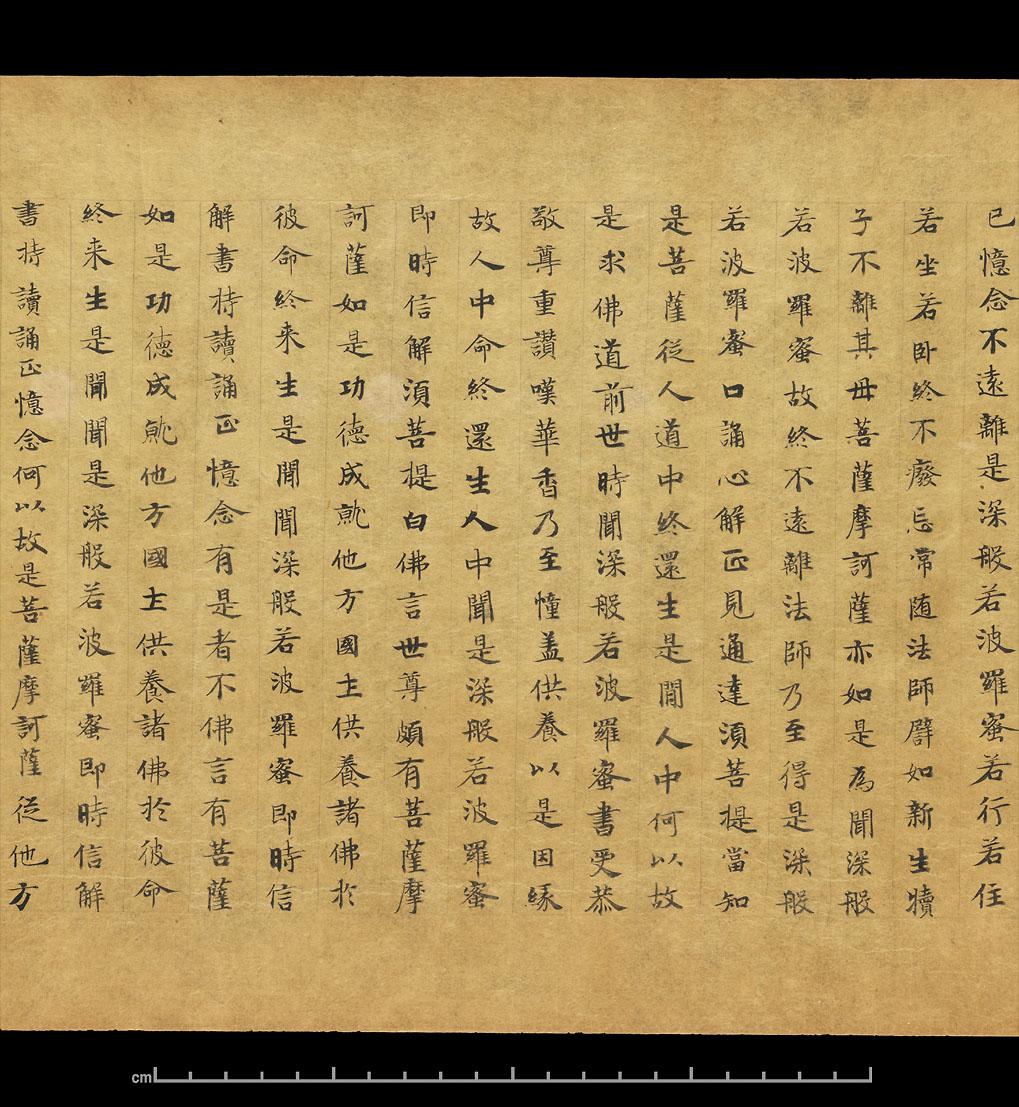 已憶念不遠離是深般若波羅蜜若行若住
若坐若卧終不癈忘常随法師譬如新生犢
子不離其母菩薩摩訶薩亦如是為聞深般
若波羅蜜故終不遠離法師乃至得是深般
若波羅蜜口誦心解正見通達湏菩提當知
是菩薩從人道中終還生是間人中何以故
是求佛道前世時聞深般若波羅蜜書受恭
敬尊重讃嘆華香乃至幢盖供養以是因緣
故人中命終還生人中聞是深般若波羅蜜
即時信解湏菩提白佛言世尊頗有菩薩摩
訶薩如是功德成就他方國土供養諸佛於
彼命終来生是間聞深般若波羅蜜即時信
解書持讀誦正憶念有是者不佛言有菩薩
如是功德成就他方國土供養諸佛於彼命
終来生是聞聞是深般若波羅蜜即時信解
書持讀誦正憶念何以故是菩薩摩訶薩從他方
cm